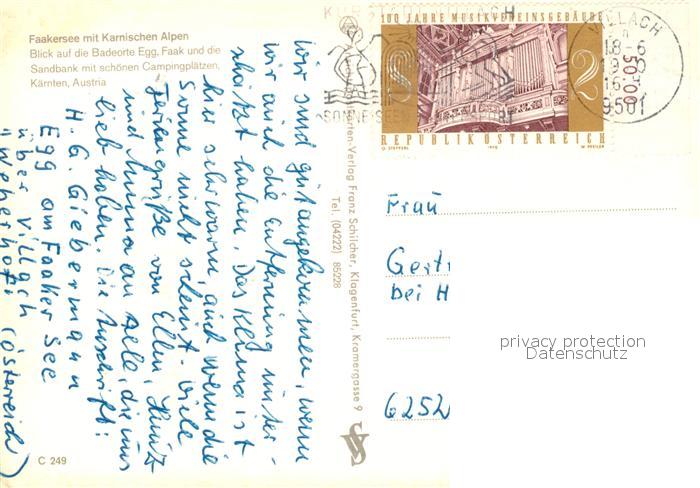 Faakersee mit Karnischen Alpen
Blick auf die Badeorte Egg, Faak und die
Sandbank mit schönen Campingplätzen,
Kärnten, Austria
wir sind gut angekommen, wenn
wir auch die Entfernung unter-
schätzt haben. Das Klima ist
hier sehr warm, auch wenn die
Sonne nicht scheint. Viele
Feriengrüße von Ellen, Heinz
und Anna an alle, die uns
lieb haben. Die Anschrift:
H. G. Giebermann
Egg am Faaker See
über Villach
"Weberhof" (Österreich)
C 249
Karten-Verlag Franz Schilcher, Klagenfurt, Kramergasse 9
Tel. (04222) 85228
100 JAHRE MUSIKVEREINSGEBÄUDE
S 2
REPUBLIK ÖSTERREICH
VILLACH
18-6
9501
50.00
SONNE SEEN
Frau
Gert
bei H
6252
privacy protection
Datenschutz